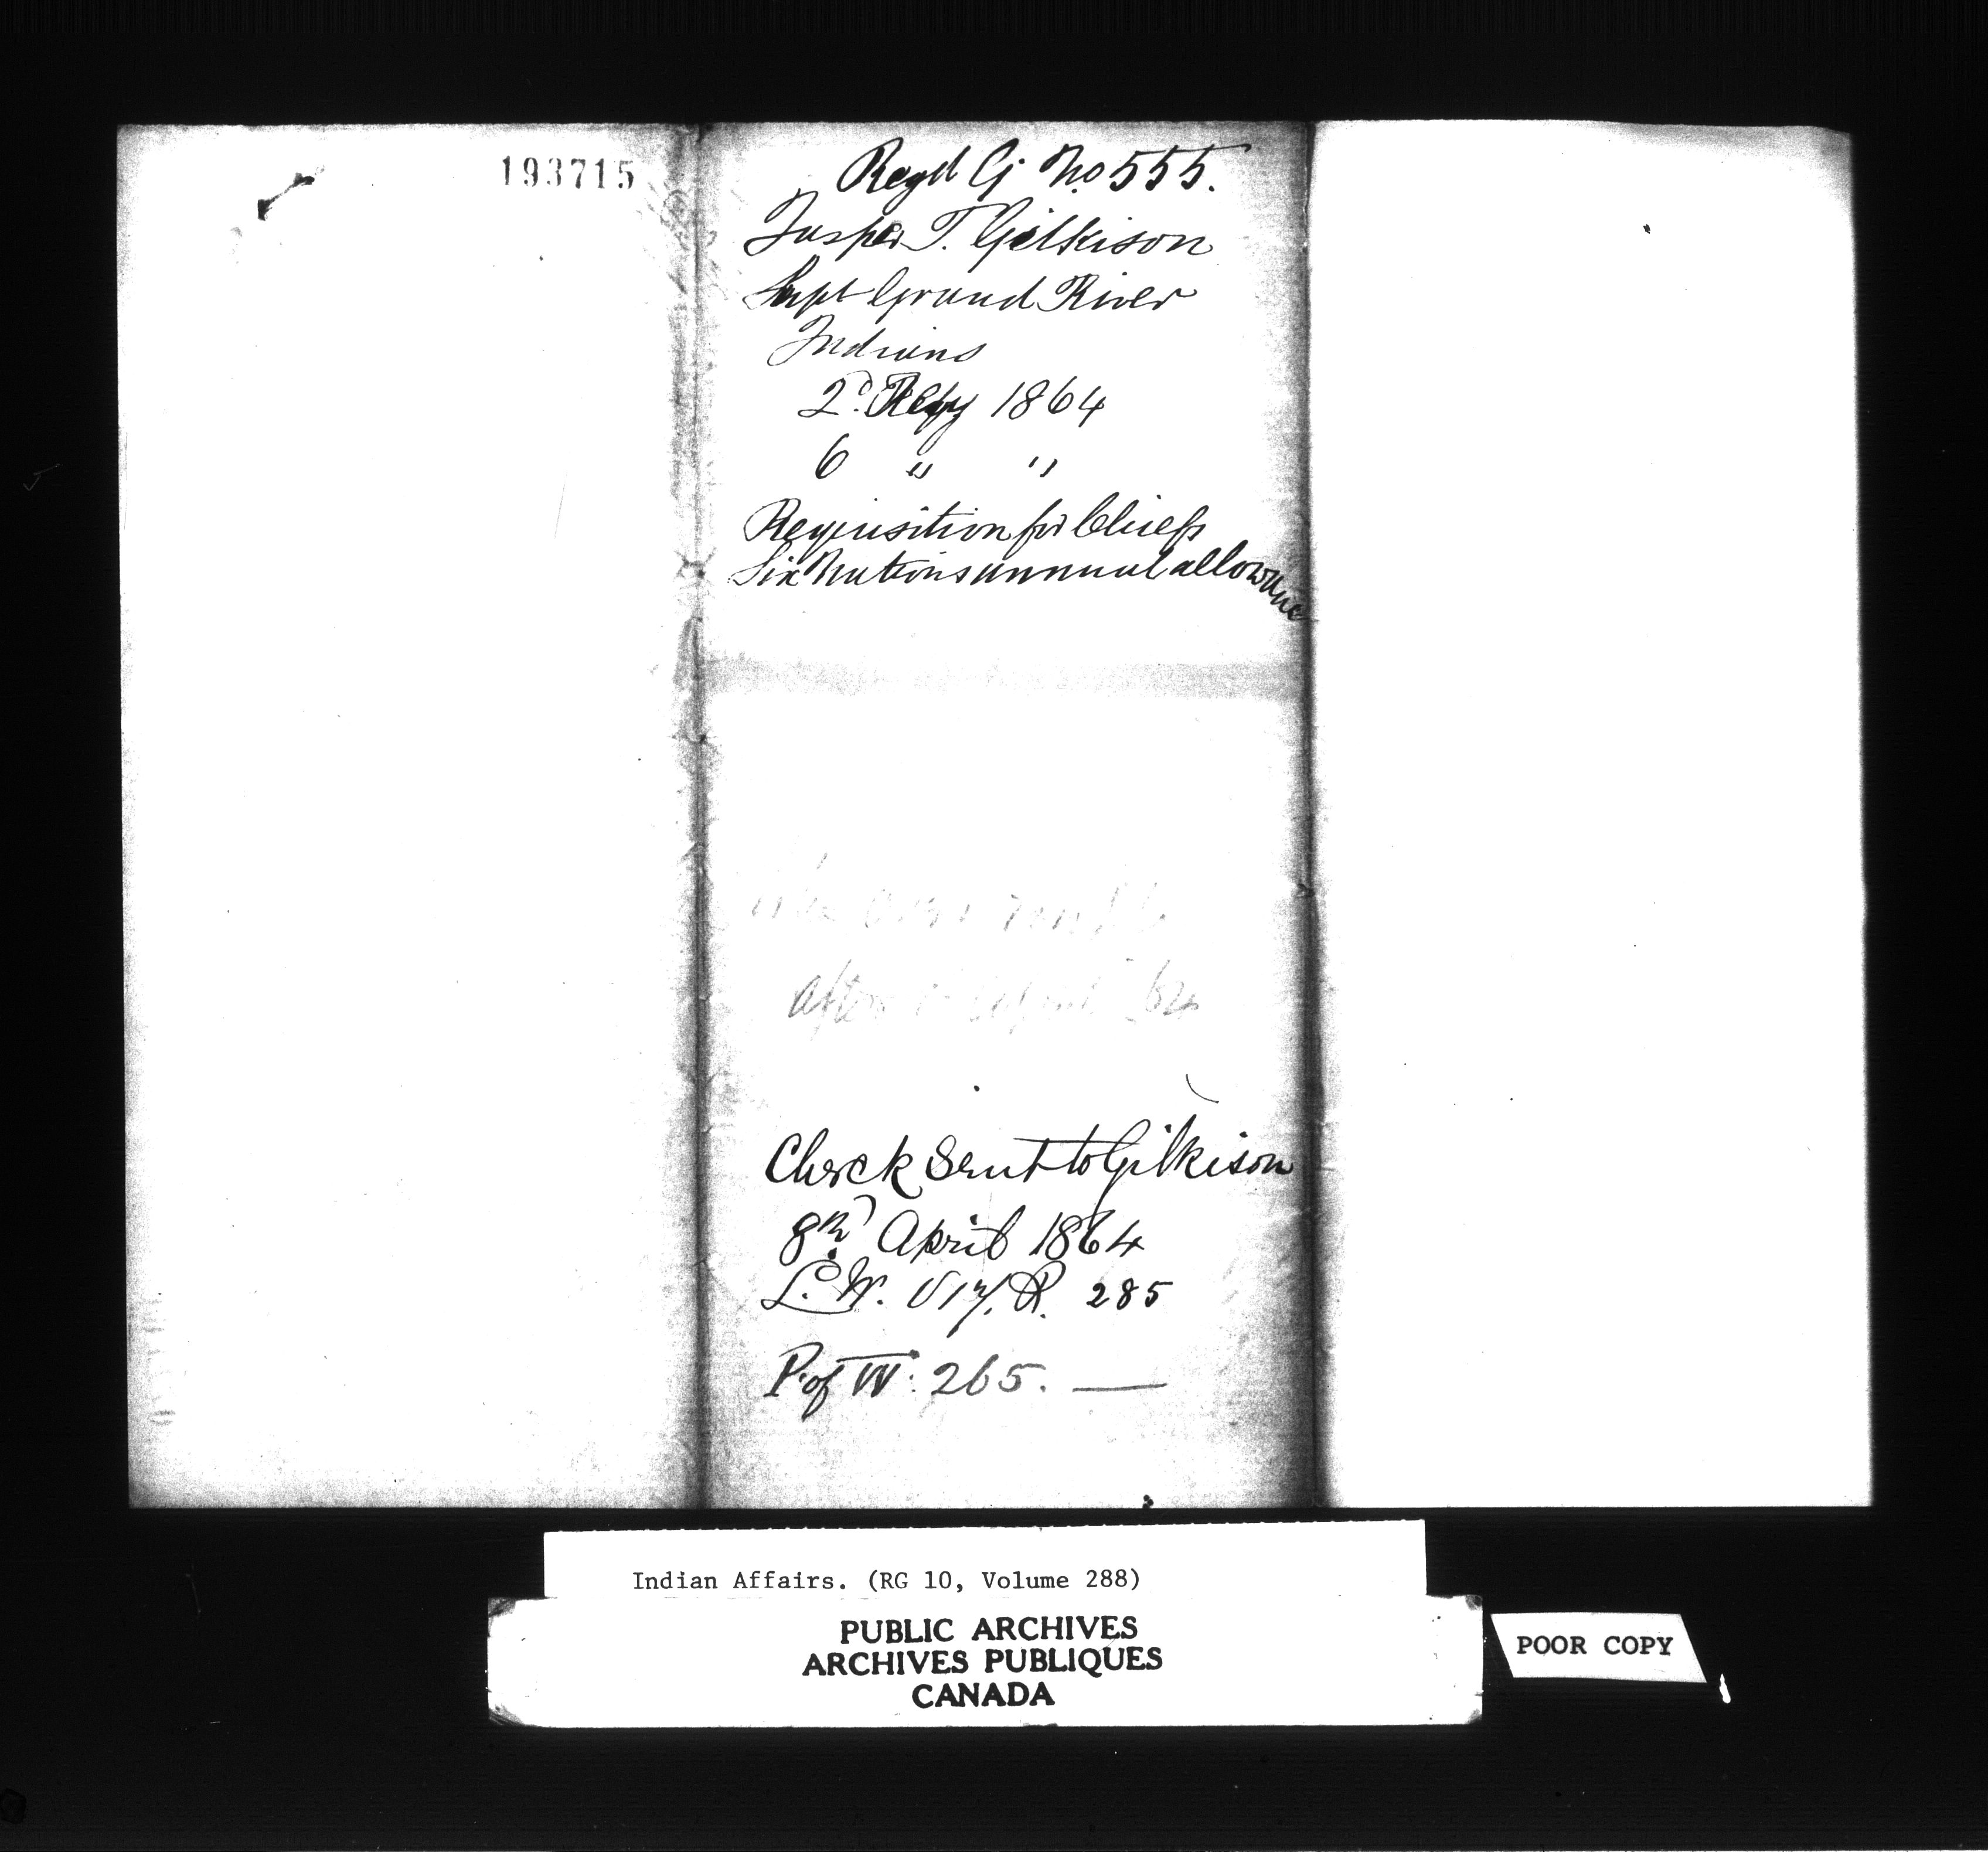 193715
Regd G No 555.
Jasper T. Gilkison
Supt Grand River
Indians
2d 1864
6 " "
Requisition for Chiefs
Six Nations annual allowance
after
Check sent to Gilkison
8th April 1864
L. W. R. 285
P. of W. 265. —
Indian Affairs. (RG 10, Volume 288)
PUBLIC ARCHIVES
ARCHIVES PUBLIQUES
CANADA
POOR COPY